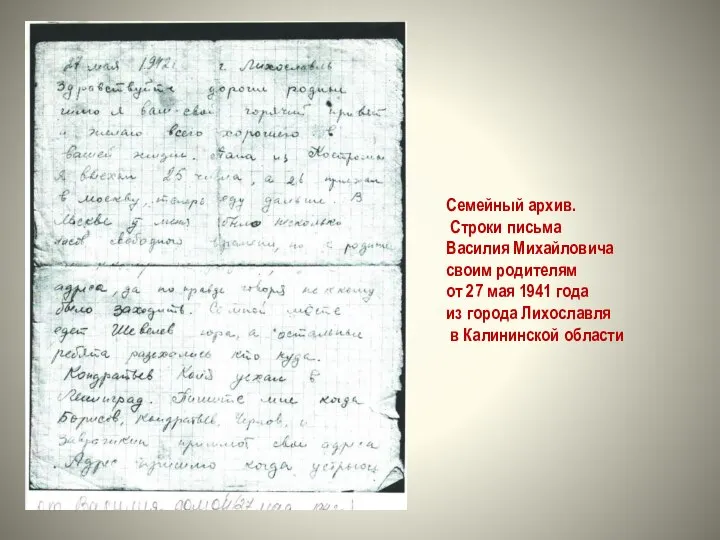 27 мая 1942г г Лихославль
Здравствуйте дорогие родители
шлю я вам свой горячий привет
и желаю всего хорошего в
вашей жизни. Папа из Костромы
я выехал 25 числа, а 26 приехал
в москву, теперь еду дальше. В
Москве у меня было несколько
часов свободного времени, но я
адреса, да по правде говоря не к кому
было заходить. Со мной вместе
едет Шевелев Юра, а остальные
ребята разъехались кто куда.
Кондратьев Коля уехал в
Ленинград. Пишите мне когда
Борисов, Кондратьев, Чернов, и
пришлют свои адреса
Адрес пришлю когда устроюсь
от Василия
Семейный архив.
Строки письма
Василия Михайловича
своим родителям
от 27 мая 1941 года
из города Лихославля
в Калининской области